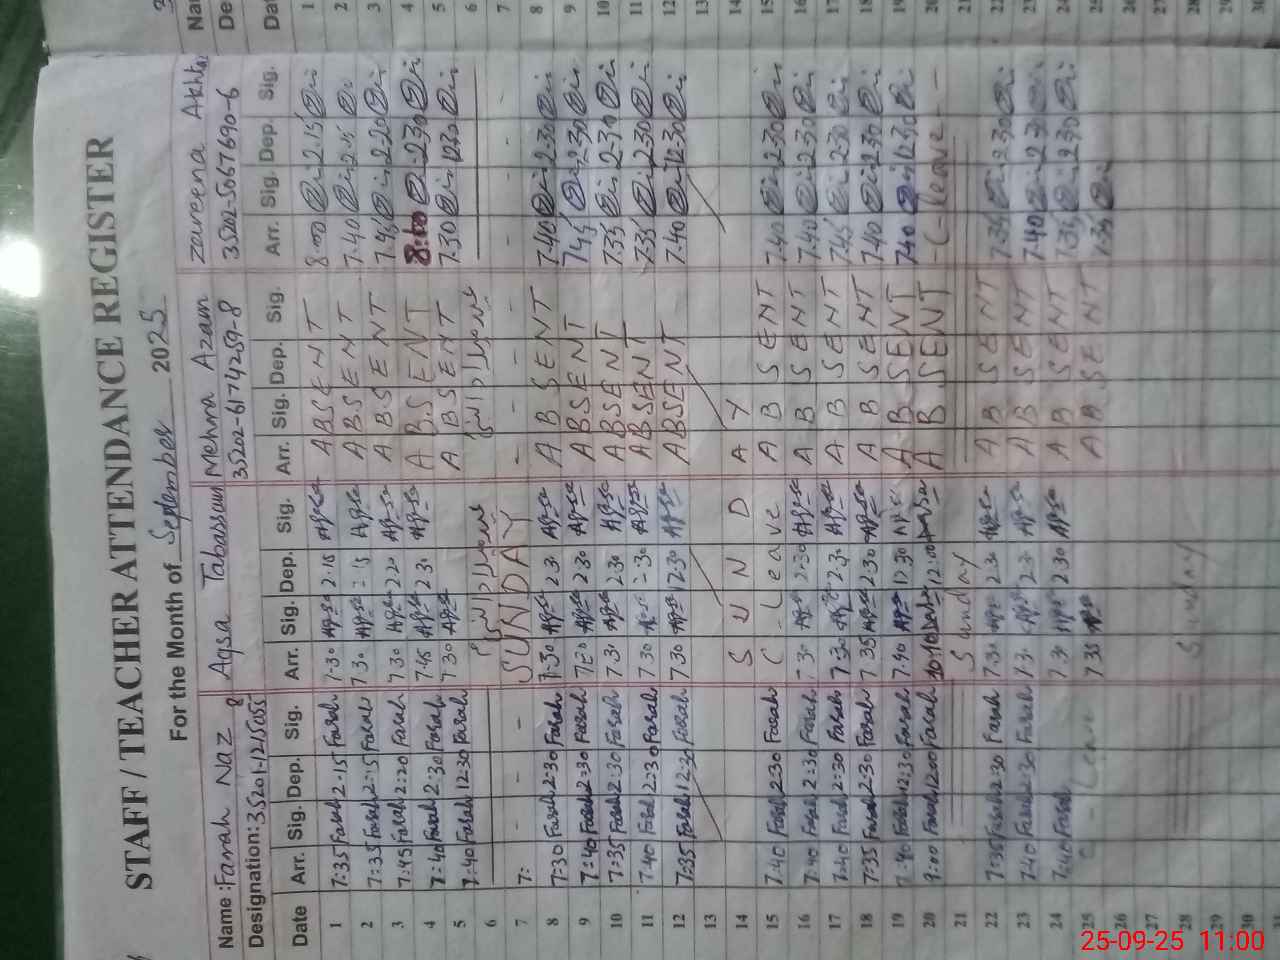 STAFF / TEACHER ATTENDANCE REGISTER
For the Month of September 2025
Name: Farrah Naz Aqsa Tabassum Mehna Azam Zarreena Akhtar
Designation: 35201-1215055-8 35202-6174259-8 35202-5067690-6
Date Arr. Sig. Dep. Sig. Arr. Sig. Dep. Sig. Arr. Sig. Dep. Sig. Arr. Sig. Dep. Sig.
1 7:35 Farah 2:15 Farah 7:30 Aqsa 2:15 Aqsa ABSENT 8:00 2:15
2 7:35 Farah 2:15 Farah 7:30 Aqsa 2:15 Aqsa ABSENT 7:40 2:15
3 7:45 Farah 2:20 Farah 7:30 Aqsa 2:20 Aqsa ABSENT 7:45 2:20
4 7:40 Farah 2:30 Farah 7:45 Aqsa 2:30 Aqsa ABSENT 8:00 2:30
5 7:40 Farah 12:30 Farah 7:30 Aqsa ABSENT 7:30 12:30
6
7 7: SUNDAY
8 7:30 Farah 2:30 Farah 7:30 Aqsa 2:30 Aqsa ABSENT 7:40 2:30
9 7:40 Farah 2:30 Farah 7:30 Aqsa 2:30 Aqsa ABSENT 7:45 2:30
10 7:35 Farah 2:30 Farah 7:30 Aqsa 2:30 Aqsa ABSENT 7:35 2:30
11 7:40 Farah 2:30 Farah 7:30 Aqsa 2:30 Aqsa ABSENT 7:35 2:30
12 7:35 Farah 12:30 Farah 7:30 Aqsa 12:30 Aqsa ABSENT 7:40 12:30
13
14 SUNDAY
15 7:40 Farah 2:30 Farah C-Leave ABSENT 7:40 2:30
16 7:40 Farah 2:30 Farah 7:30 Aqsa 2:30 Aqsa ABSENT 7:40 2:30
17 7:40 Farah 2:30 Farah 7:30 Aqsa 2:30 Aqsa ABSENT 7:45 2:30
18 7:35 Farah 2:30 Farah 7:35 Aqsa 2:30 Aqsa ABSENT 7:40 2:30
19 7:40 Farah 12:30 Farah 7:40 Aqsa 12:30 Aqsa ABSENT 7:40 12:30
20 9:00 Farah 12:00 Farah 10:10 Aqsa 12:00 Aqsa ABSENT -C-leave-
21 Sunday
22 7:35 Farah 2:30 Farah 7:30 Aqsa 2:30 Aqsa ABSENT 7:35 2:30
23 7:40 Farah 2:30 Farah 7:30 Aqsa 2:30 Aqsa ABSENT 7:40 2:30
24 7:40 Farah 7:30 Aqsa 2:30 Aqsa ABSENT 7:35 2:30
25 C-Leave 7:35 Aqsa ABSENT 7:35
26
27
28 Sunday
29
30
Date
1
2
3
4
5
6
7
8
9
10
11
12
13
14
15
16
17
18
19
20
21
22
23
24
25
26
27
28
29
30
25-09-25 11:00